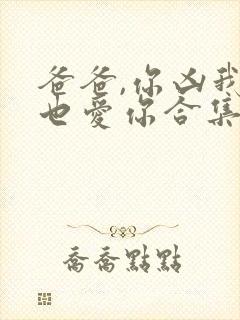 爸爸,你凶我
也愛你合集
喬喬點點